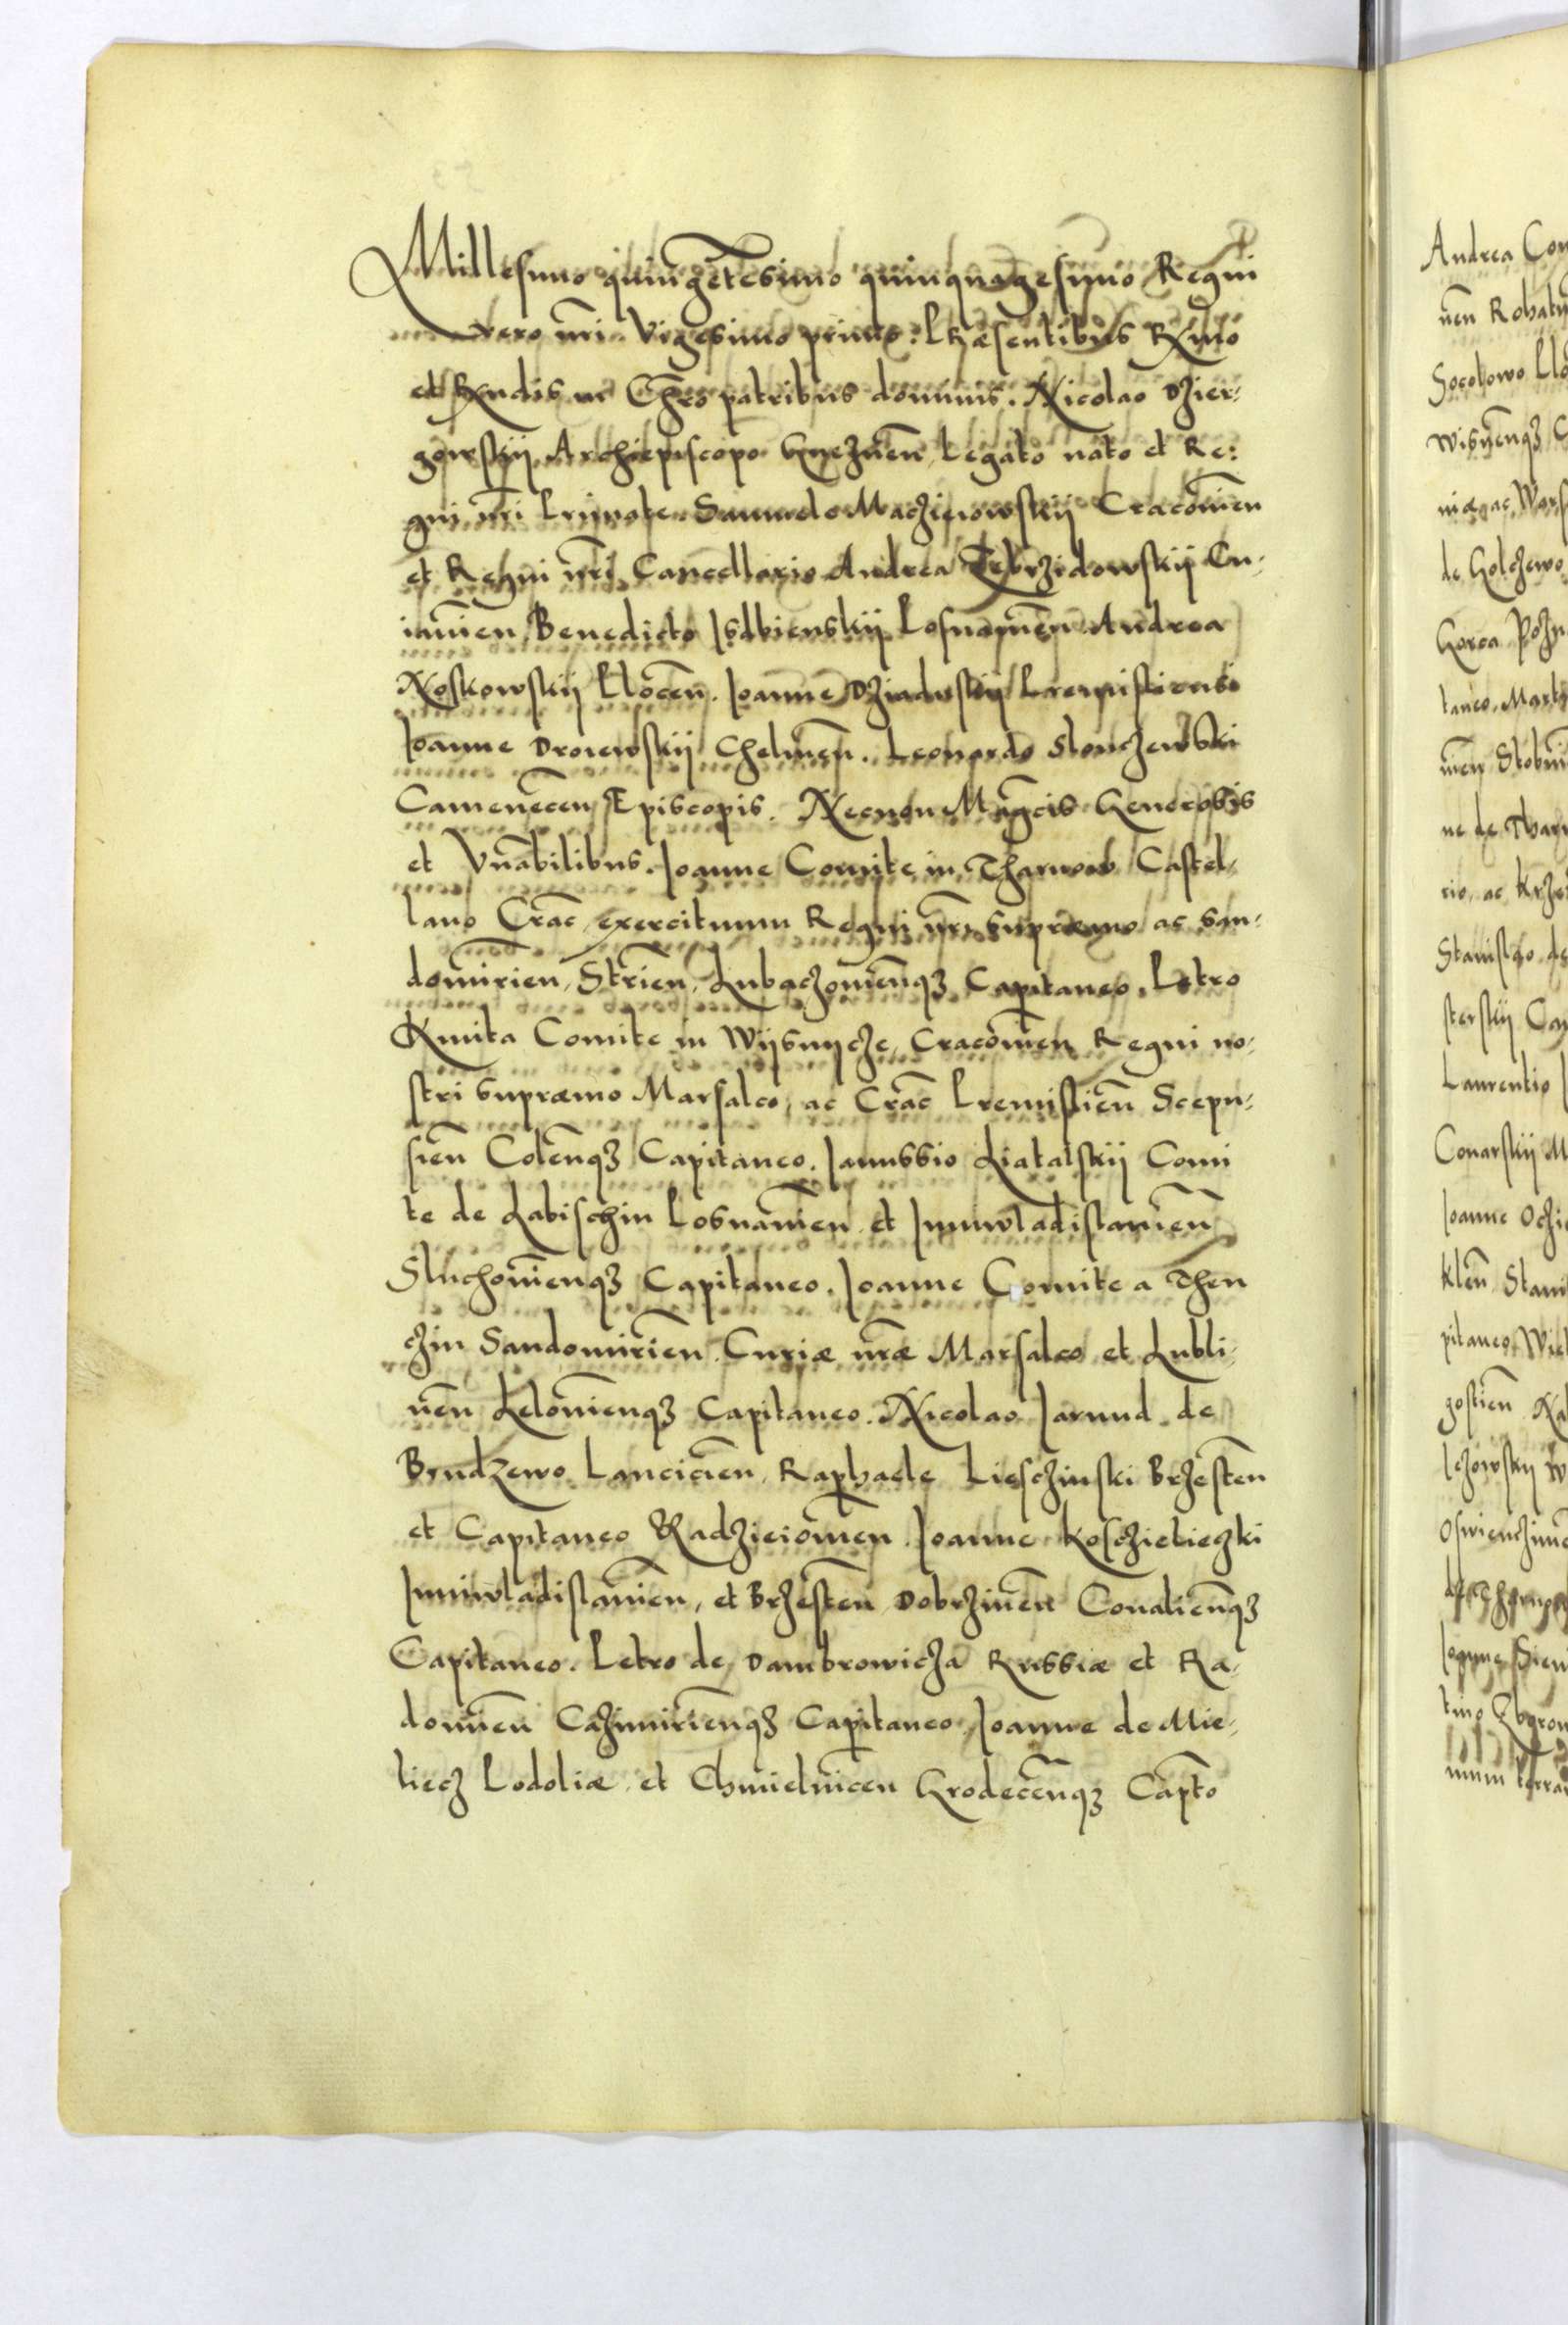 Millesimo quingētesimo quinquagesimo Regni
vero nr̄i Vigesimo primo. Præsentibus Rx̄mo
et Rx̄ndis in Chr̄o patribus dominis. Nicolao Dzier-
gowskij Archiepiscopo Gneznen̄ Legato nato et Re-
gni nr̄i Primate Samuele Maczieiowskij Cracovien̄
et Regni nr̄i Cancellario Andrea Zebrzidowskij Cu-
iavien̄ Benedicto Isdbienskij Posnanien̄ Andrea
Noskowskij Plocen̄. Ioanne Dziaduskij Premisliensi
Ioanne Droiewskij Chelmen̄. Leonardo Slonczewski
Camenecen̄ Episcopis. Necnon Magcis Generosis
et Vnābilibus. Ioanne Comite in Tharnow Castel-
lano Crac̄ exercituum Regni nr̄i supræmo ac San-
domirien̄, Strien̄, Lubaczovienq̄ꝫ Capitaneo. Petro
Kmita Comite in Wijsnijcze, Cracovien̄ Regni no-
stri supræmo Marsalco, ac Crac̄ Premislien̄ Scepu-
sien̄ Colenq̄ꝫ Capitaneo. Ianussio Latalskij Comi
te de Labischin Posnanien̄ et Iuniwladislavien̄
Sluchovienq̄ꝫ Capitaneo. Ioanne Comite a Then
czin Sandomirien̄. Curiæ nr̄æ Marsalco et Lubli-
nen̄ Lelovienq̄ꝫ Capitaneo. Nicolao Iarund de
Brudzewo Lancicien̄ Raphaele Liesczinski Brzesten̄
et Capitaneo Radzieiovien̄ Ioanne Kosczieliezki
Iuniwladislavien̄, et Brzesten̄ Dobrzinen̄ Conalienq̄ꝫ
Capitaneo. Petro de Dambrowicza Russiæ et Ra-
domien̄ Cazimirienq̄ꝫ Capitaneo. Ioanne de Mie-
liecz Podoliæ et Chmielnicen̄ Grodecenq̄ꝫ Capto
Andrea Com
nen̄ Rohatin
Socolowo Plo
wisnenq̄ꝫ C
niæ ac Wars
de Golczewo
Gorca Pozn
taneo. Mart
men̄ Stobni
ne de Thar
rio, ac Krze
Stanislao de
sterskij Cap
Laurentio
Conarskij M
Ioanne Oczi
klen̄ Stani
pitaneo Wiel
gostien̄ Na
lczowskij W
Oswienczime
Ioanne Sien
tino Zborow
num terra